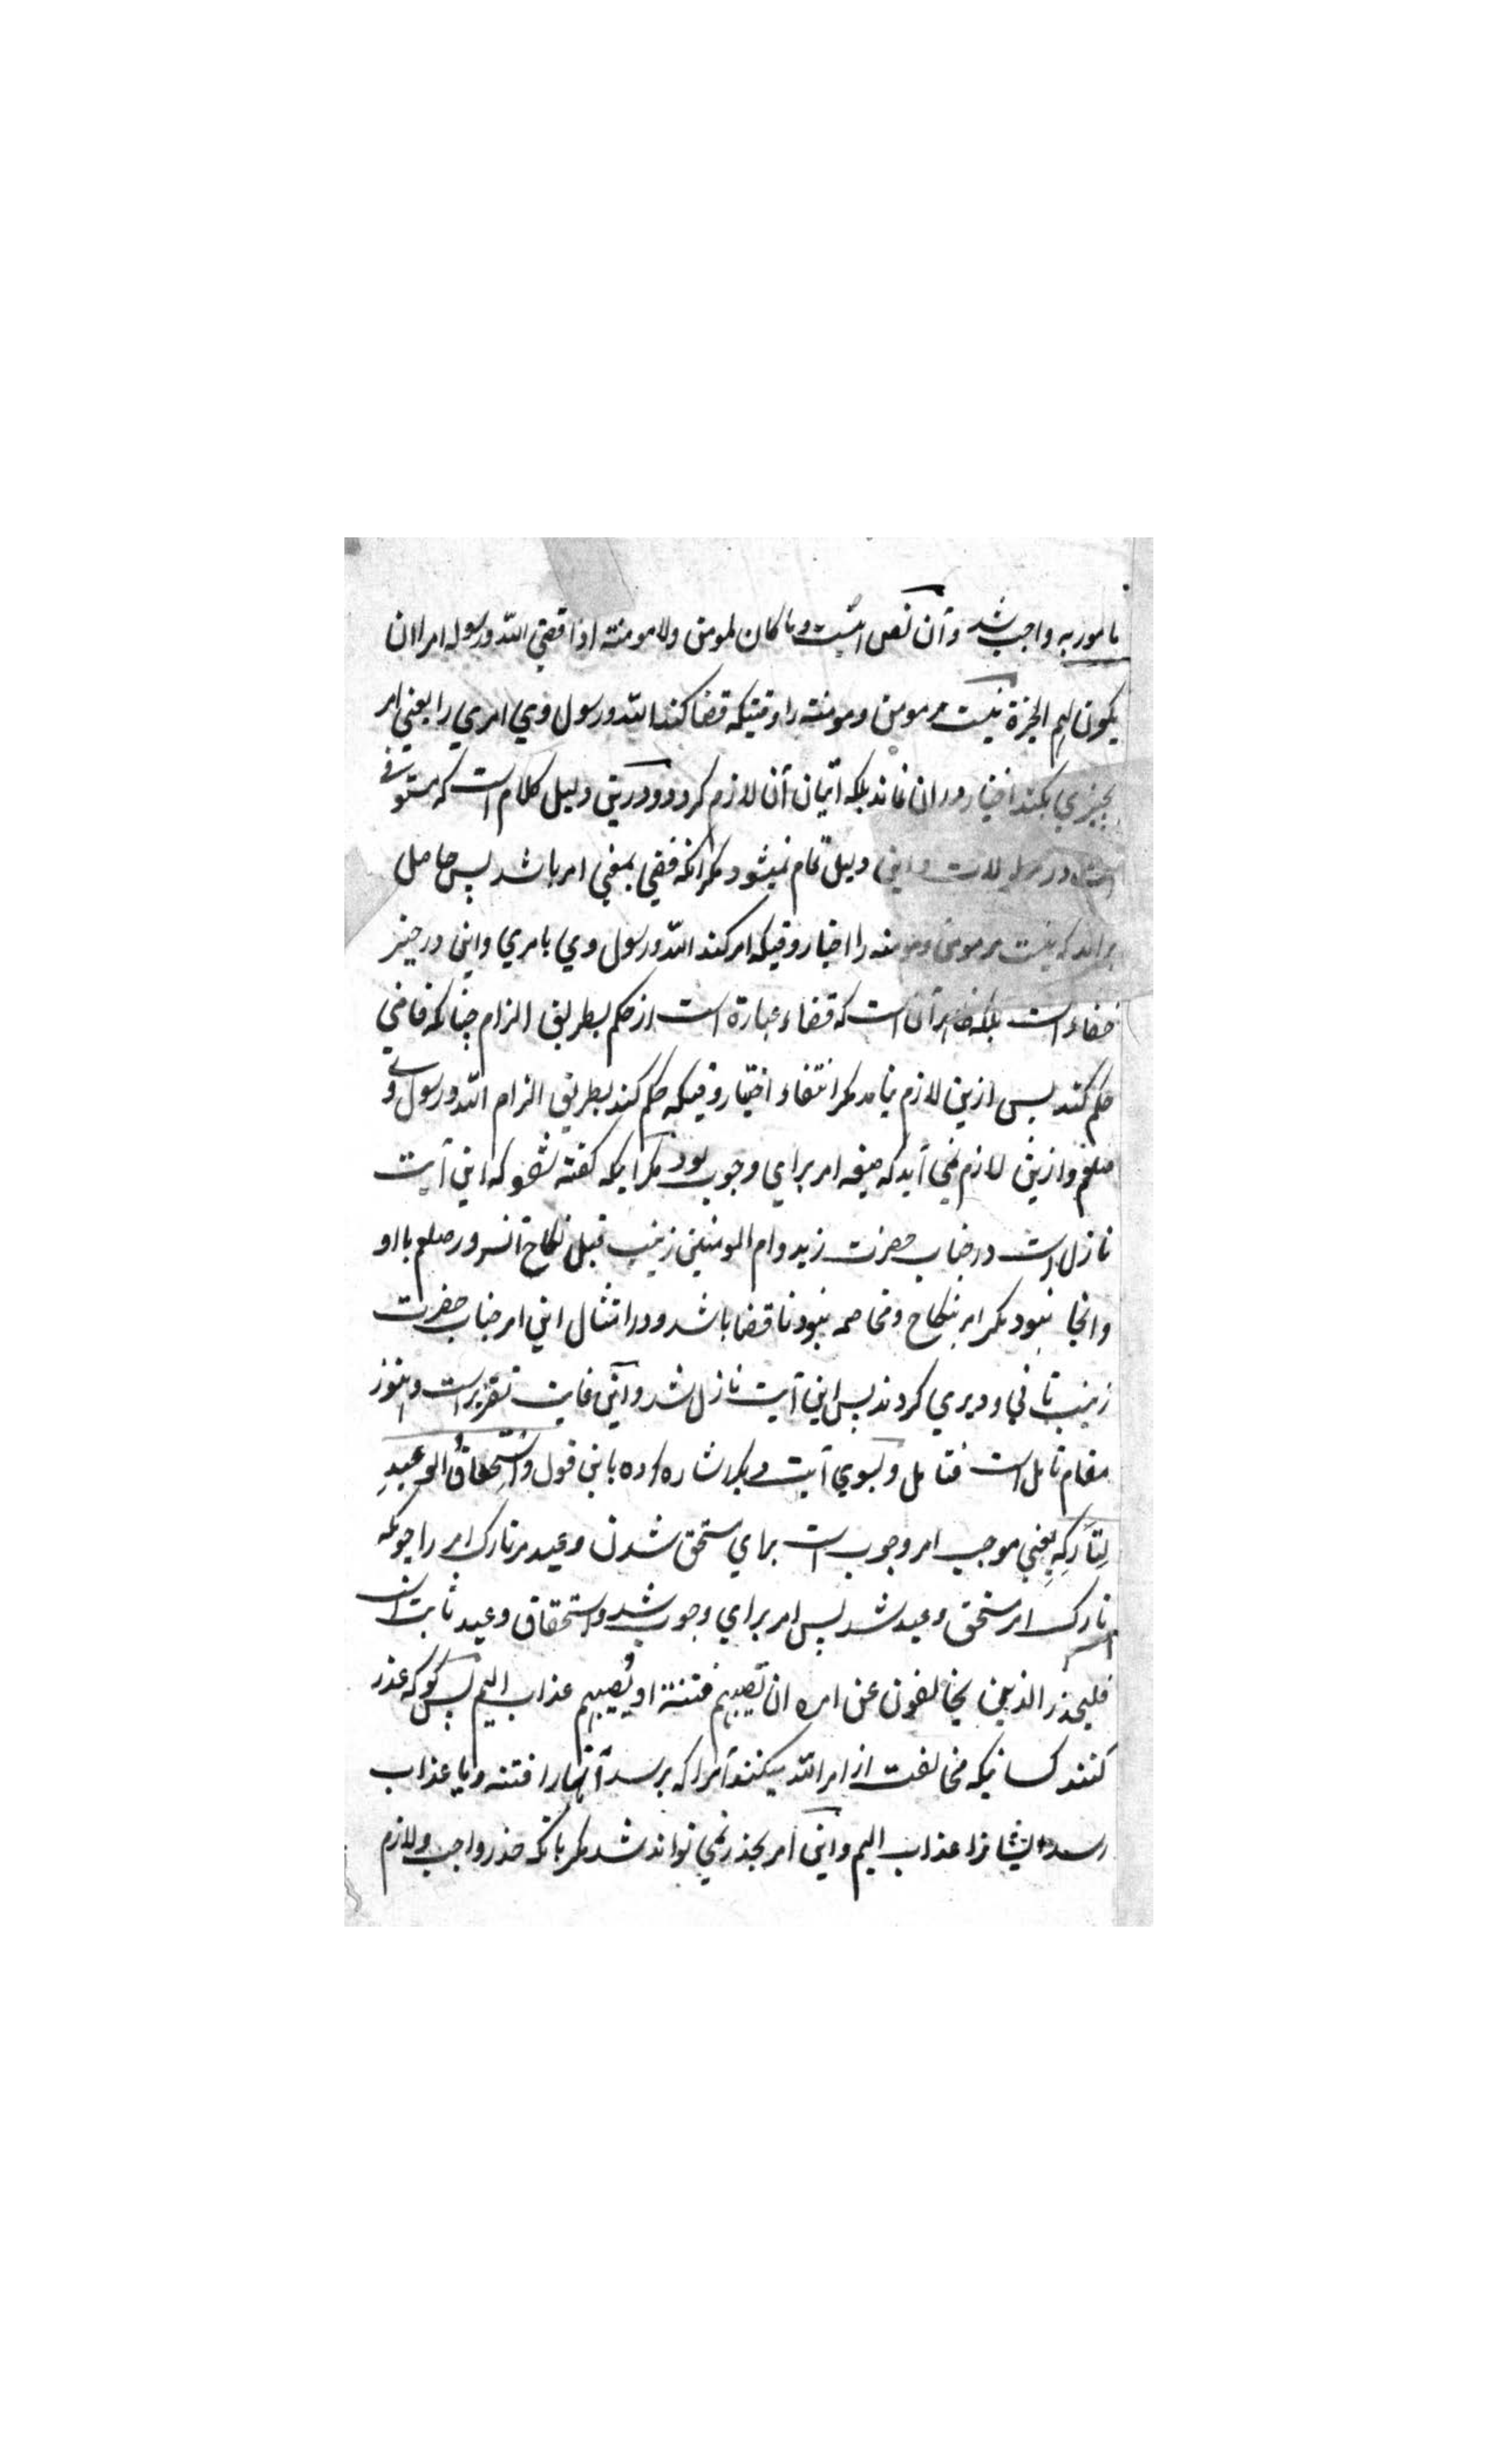 مامور به واجب شد وآن نص اینست وما کان لمومن ولا مومنة اذا قضی الله ورسوله امرا ان
یکون لهم الخیرة نیست مر مومن ومومنه را وقتیکه قضا کند الله ورسول وی امری را یعنی امر
بچیزی بکند اختیار دران نماند بلکه اتیان آن لازم کردد ودرین دلیل کلام است که مستوفی
است در واین دلیل تمام نمیشود مکر انکه قضی بمعنی امر باشد پس حاصل
براند که نیست مر مومن ومومنه را اختیار وقتیکه امر کند الله ورسول وی بامری واین در حیز
خفاء است بلکه ظاهر آن است که قضاء عبارة است از حکم بطریق الزام چنانکه قاضی
حکم کند پس ازین لازم نیامد مکر انتفاء اختیار وقتیکه حکم کند بطریق الزام الله ورسول وی
صلعم وازین لازم نمی آید که صیغه امر برای وجوب بود مکر اینکه کفته شود که این آیت
نازل است در جناب حضرت زید وام المومنین زینب قبل نکاح آنسرور صلعم با او
وانجا نبود مکر امر بنکاح ومخاصمه نبود تا قضا باشد ودر امتثال این امر جناب حضرت
زینب تانی ودیری کردند پس این آیت نازل شد واین غایت تقریر است وهنوز
مقام تامل است فتامل وبسوی آیت دیکر اشاره کرده باین قول واستحقاق الوعید
لتارکه یعنی موجب امر وجوب است برای مستحق شدن وعید مر تارک امر را چونکه
تارک امر مستحق وعید شد پس امر برای وجوب شد واستحقاق وعید ثابت است
فلیحذر الذین یخالفون عن امره ان تصیبهم فتنة او یصیبهم عذاب الیم پس کو که عذر
کنند کسانیکه مخالفت از امر الله میکنند آنرا که برسد آنها را فتنه ویا عذاب
رسد ایشانرا عذاب الیم واین امر بحذر نمی تواند شد مکر بانکه حذر واجب ولازم